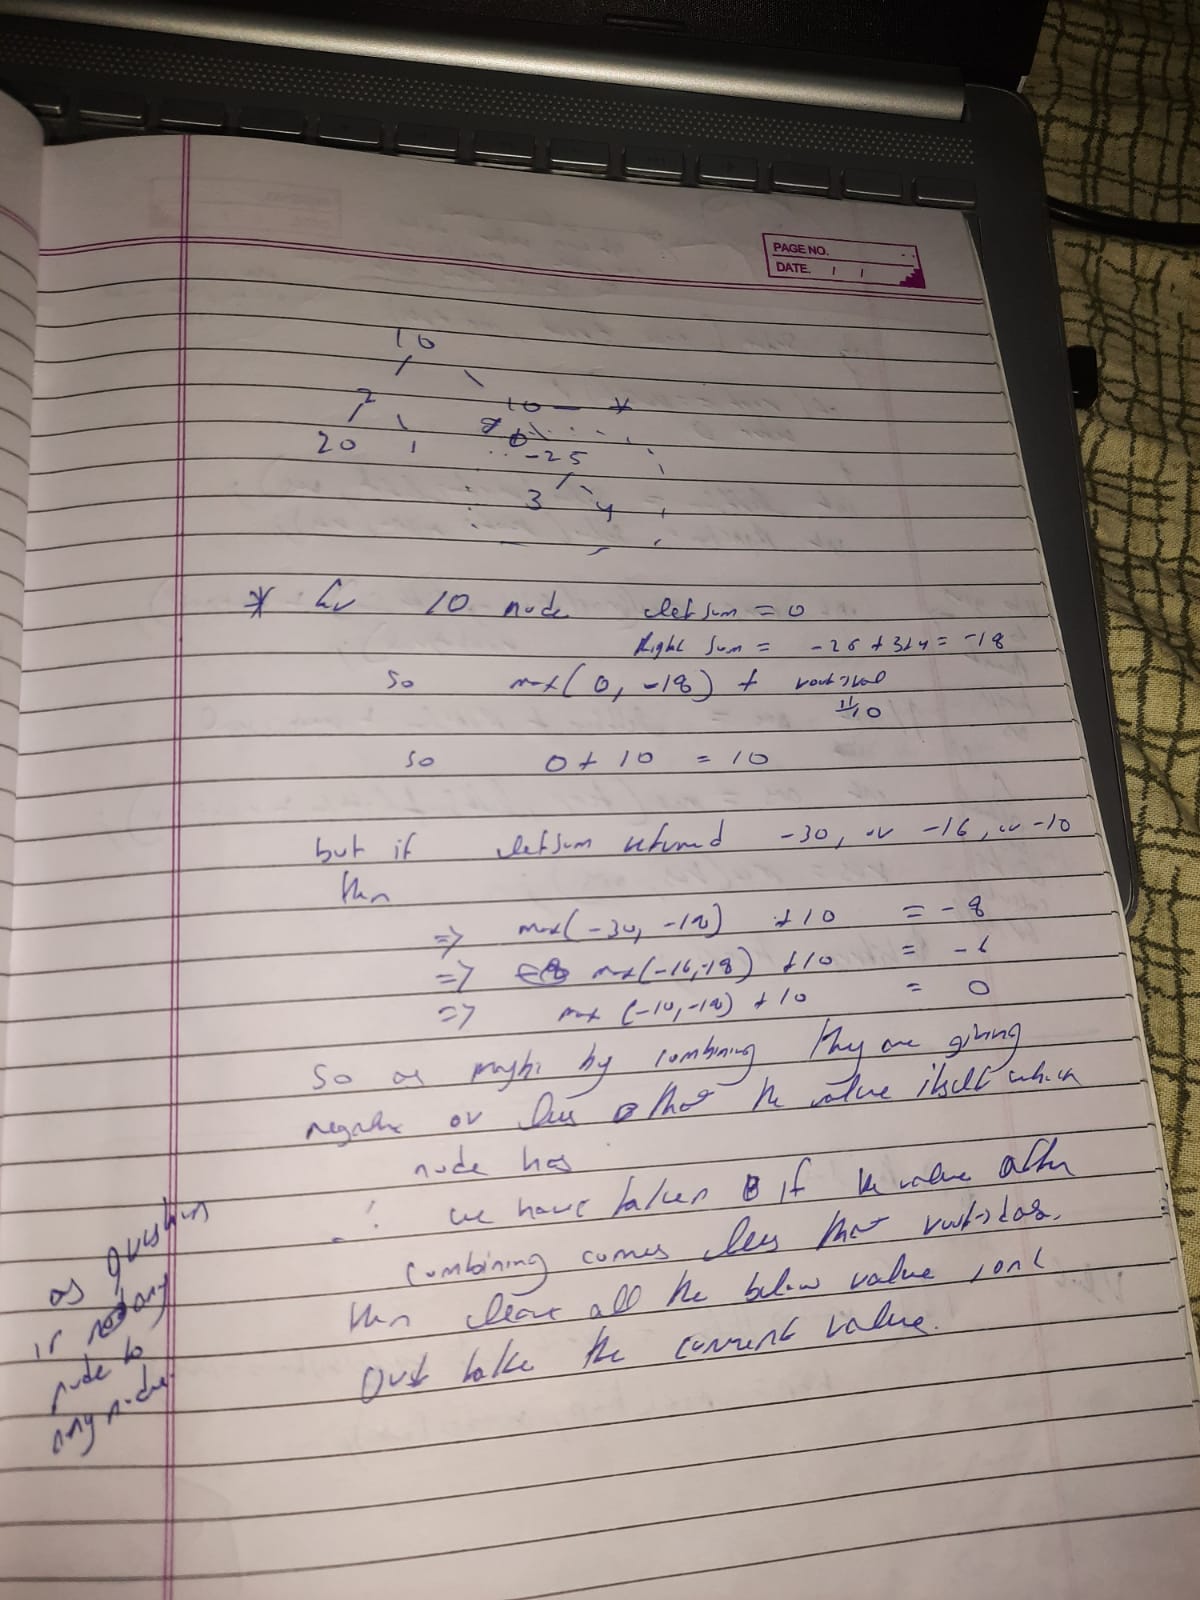 PAGE NO.
DATE. / /
10
2 10 *
20 1 -25
3 4
* for 10 node leftsum = 0
Right sum = -25 + 3+4 = -18
so max( 0, -18) + root->val
10
so 0 + 10 = 10
but if leftsum returned -30, or -16, or -10
then
=> max(-30, -18) +10 = -8
=> max(-16,-18) +10 = -6
=> max (-10,-18) + 10 = 0
So as maybe by combining they are giving
negative or less that the value itself which
node has
∴ we have taken if the value after
combining comes less that root->data.
then leave all the below value , and
Just take the current value.
as question
is any
node to
any node.